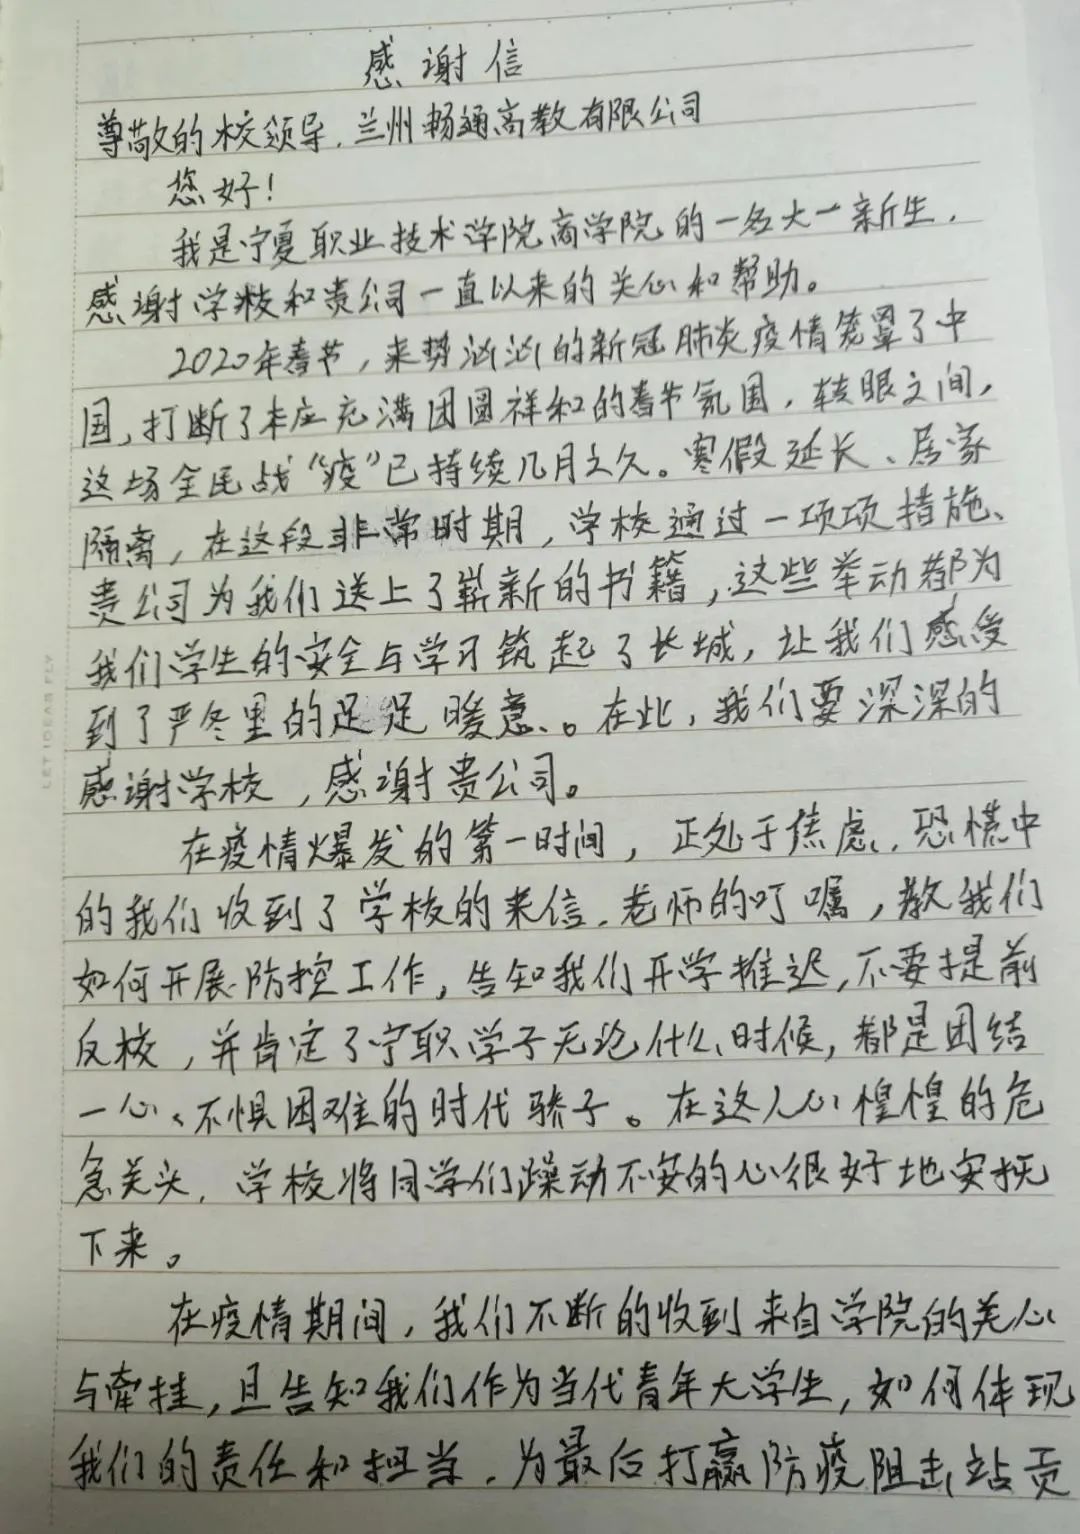 感谢信
尊敬的校领导、兰州畅通高教有限公司
您好！
我是宁夏职业技术学院商学院的一名大一新生，
感谢学校和贵公司一直以来的关心和帮助。
2020年春节，来势汹汹的新冠肺炎疫情笼罩了中
国，打断了本应充满团圆祥和的春节氛围，转眼之间，
这场全民战“疫”已持续几月之久。寒假延长、居家
隔离，在这段非常时期，学校通过一项项措施、
贵公司为我们送上了崭新的书籍，这些举动都为
我们学生的安全与学习筑起了长城，让我们感受
到了严冬里的足足暖意、。在此，我们要深深的
感谢学校，感谢贵公司。
在疫情爆发的第一时间，正处于焦虑、恐慌中
的我们收到了学校的来信、老师的叮嘱，教我们
如何开展防控工作，告知我们开学推迟，不要提前
反校，并肯定了宁职学子无论什么时候，都是团结
一心、不惧困难的时代骄子。在这人心惶惶的危
急关头，学校将同学们躁动不安的心很好地安抚
下来。
在疫情期间，我们不断的收到来自学院的关心
与牵挂，且告知我们作为当代青年大学生，如何体现
我们的责任和担当，为最后打赢防疫阻击站贡
LET IDEAS FLY